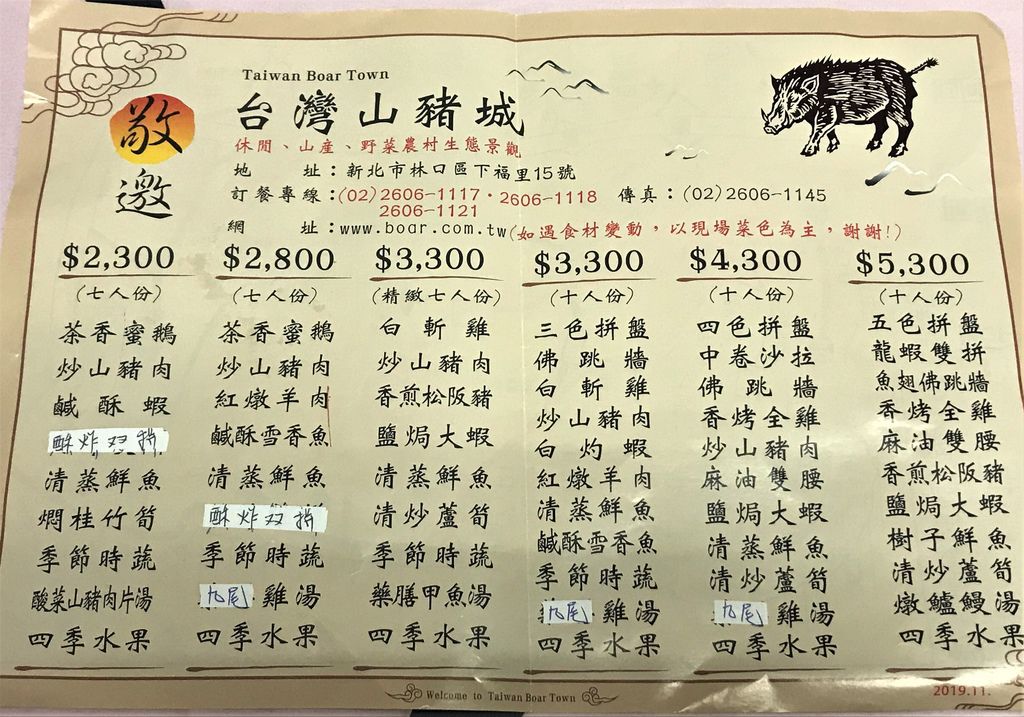 Taiwan Boar Town
敬邀
台灣山豬城
休閒、山產、野菜農村生態景觀
地址：新北市林口區下福里15號
訂餐專線：(02)2606-1117・2606-1118 傳真：(02)2606-1145
2606-1121
網址：www.boar.com.tw(如遇食材變動，以現場菜色為主，謝謝!)
$2,300
(七人份)
茶香蜜鵝
炒山豬肉
鹹酥蝦
酥炸双拼
清蒸鮮魚
燜桂竹筍
季節時蔬
酸菜山豬肉片湯
四季水果
$2,800
(七人份)
茶香蜜鵝
炒山豬肉
紅燉羊肉
鹹酥雪香魚
清蒸鮮魚
酥炸双拼
季節時蔬
九尾雞湯
四季水果
$3,300
(精緻七人份)
白斬雞
炒山豬肉
香煎松阪豬
鹽焗大蝦
清蒸鮮魚
清炒蘆筍
季節時蔬
藥膳甲魚湯
四季水果
$3,300
(十人份)
三色拼盤
佛跳牆
白斬雞
炒山豬肉
白灼蝦
紅燉羊肉
清蒸鮮魚
鹹酥雪香魚
季節時蔬
九尾雞湯
四季水果
$4,300
(十人份)
四色拼盤
中卷沙拉
佛跳牆
香烤全雞
炒山豬肉
麻油雙腰
鹽焗大蝦
清蒸鮮魚
清炒蘆筍
九尾雞湯
四季水果
$5,300
(十人份)
五色拼盤
龍蝦雙拼
魚翅佛跳牆
香烤全雞
麻油雙腰
香煎松阪豬
鹽焗大蝦
樹子鮮魚
清炒蘆筍
燉鱸鰻湯
四季水果
Welcome to Taiwan Boar Town
2019.11.